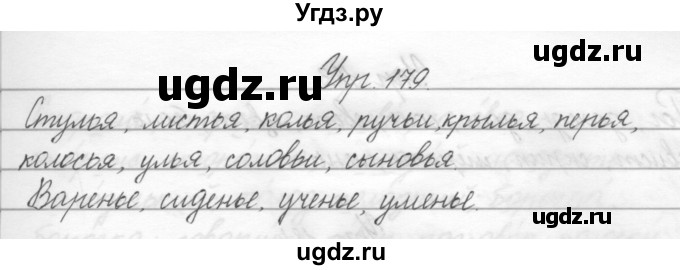 Угдз.ру
ugdz.ru ugdz.ru
Упр. 179.
Стулья, листья, колья, ручьи, крылья, перья,
колосья, улья, соловьи, сыновья.
ugdz.ru ugdz.ru
Варенье, сиденье, ученье, уменье.
ugdz.ru ugdz.ru
ugdz.ru